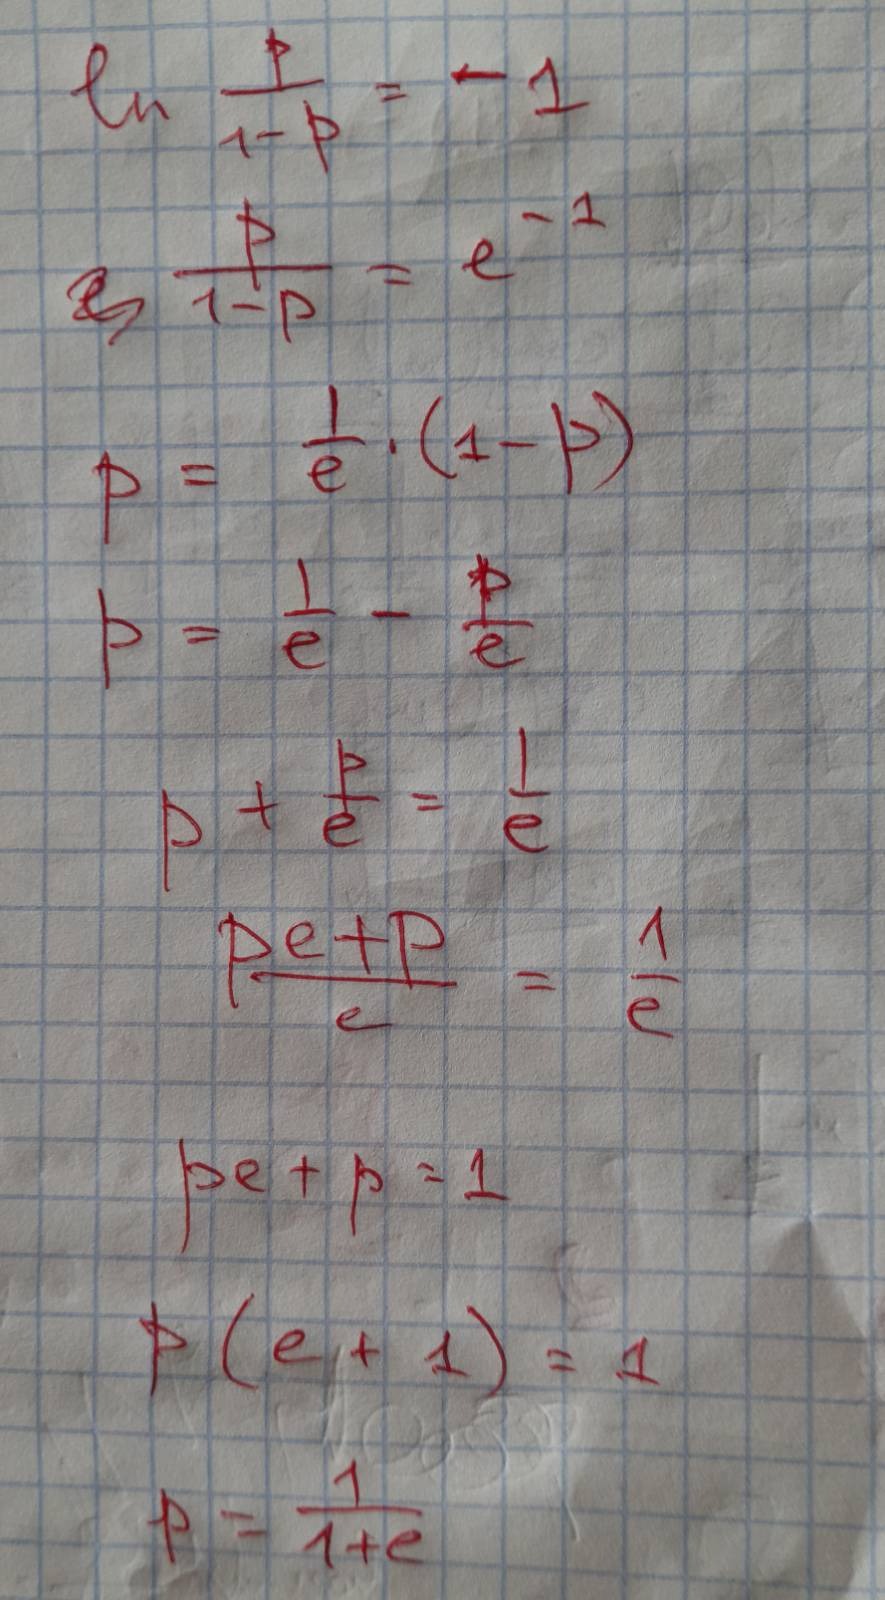 ln p/(1-p) = -1
p/(1-p) = e^-1
p = 1/e · (1-p)
p = 1/e - p/e
p + p/e = 1/e
(pe+p)/e = 1/e
pe + p = 1
p(e + 1) = 1
p = 1/(1+e)